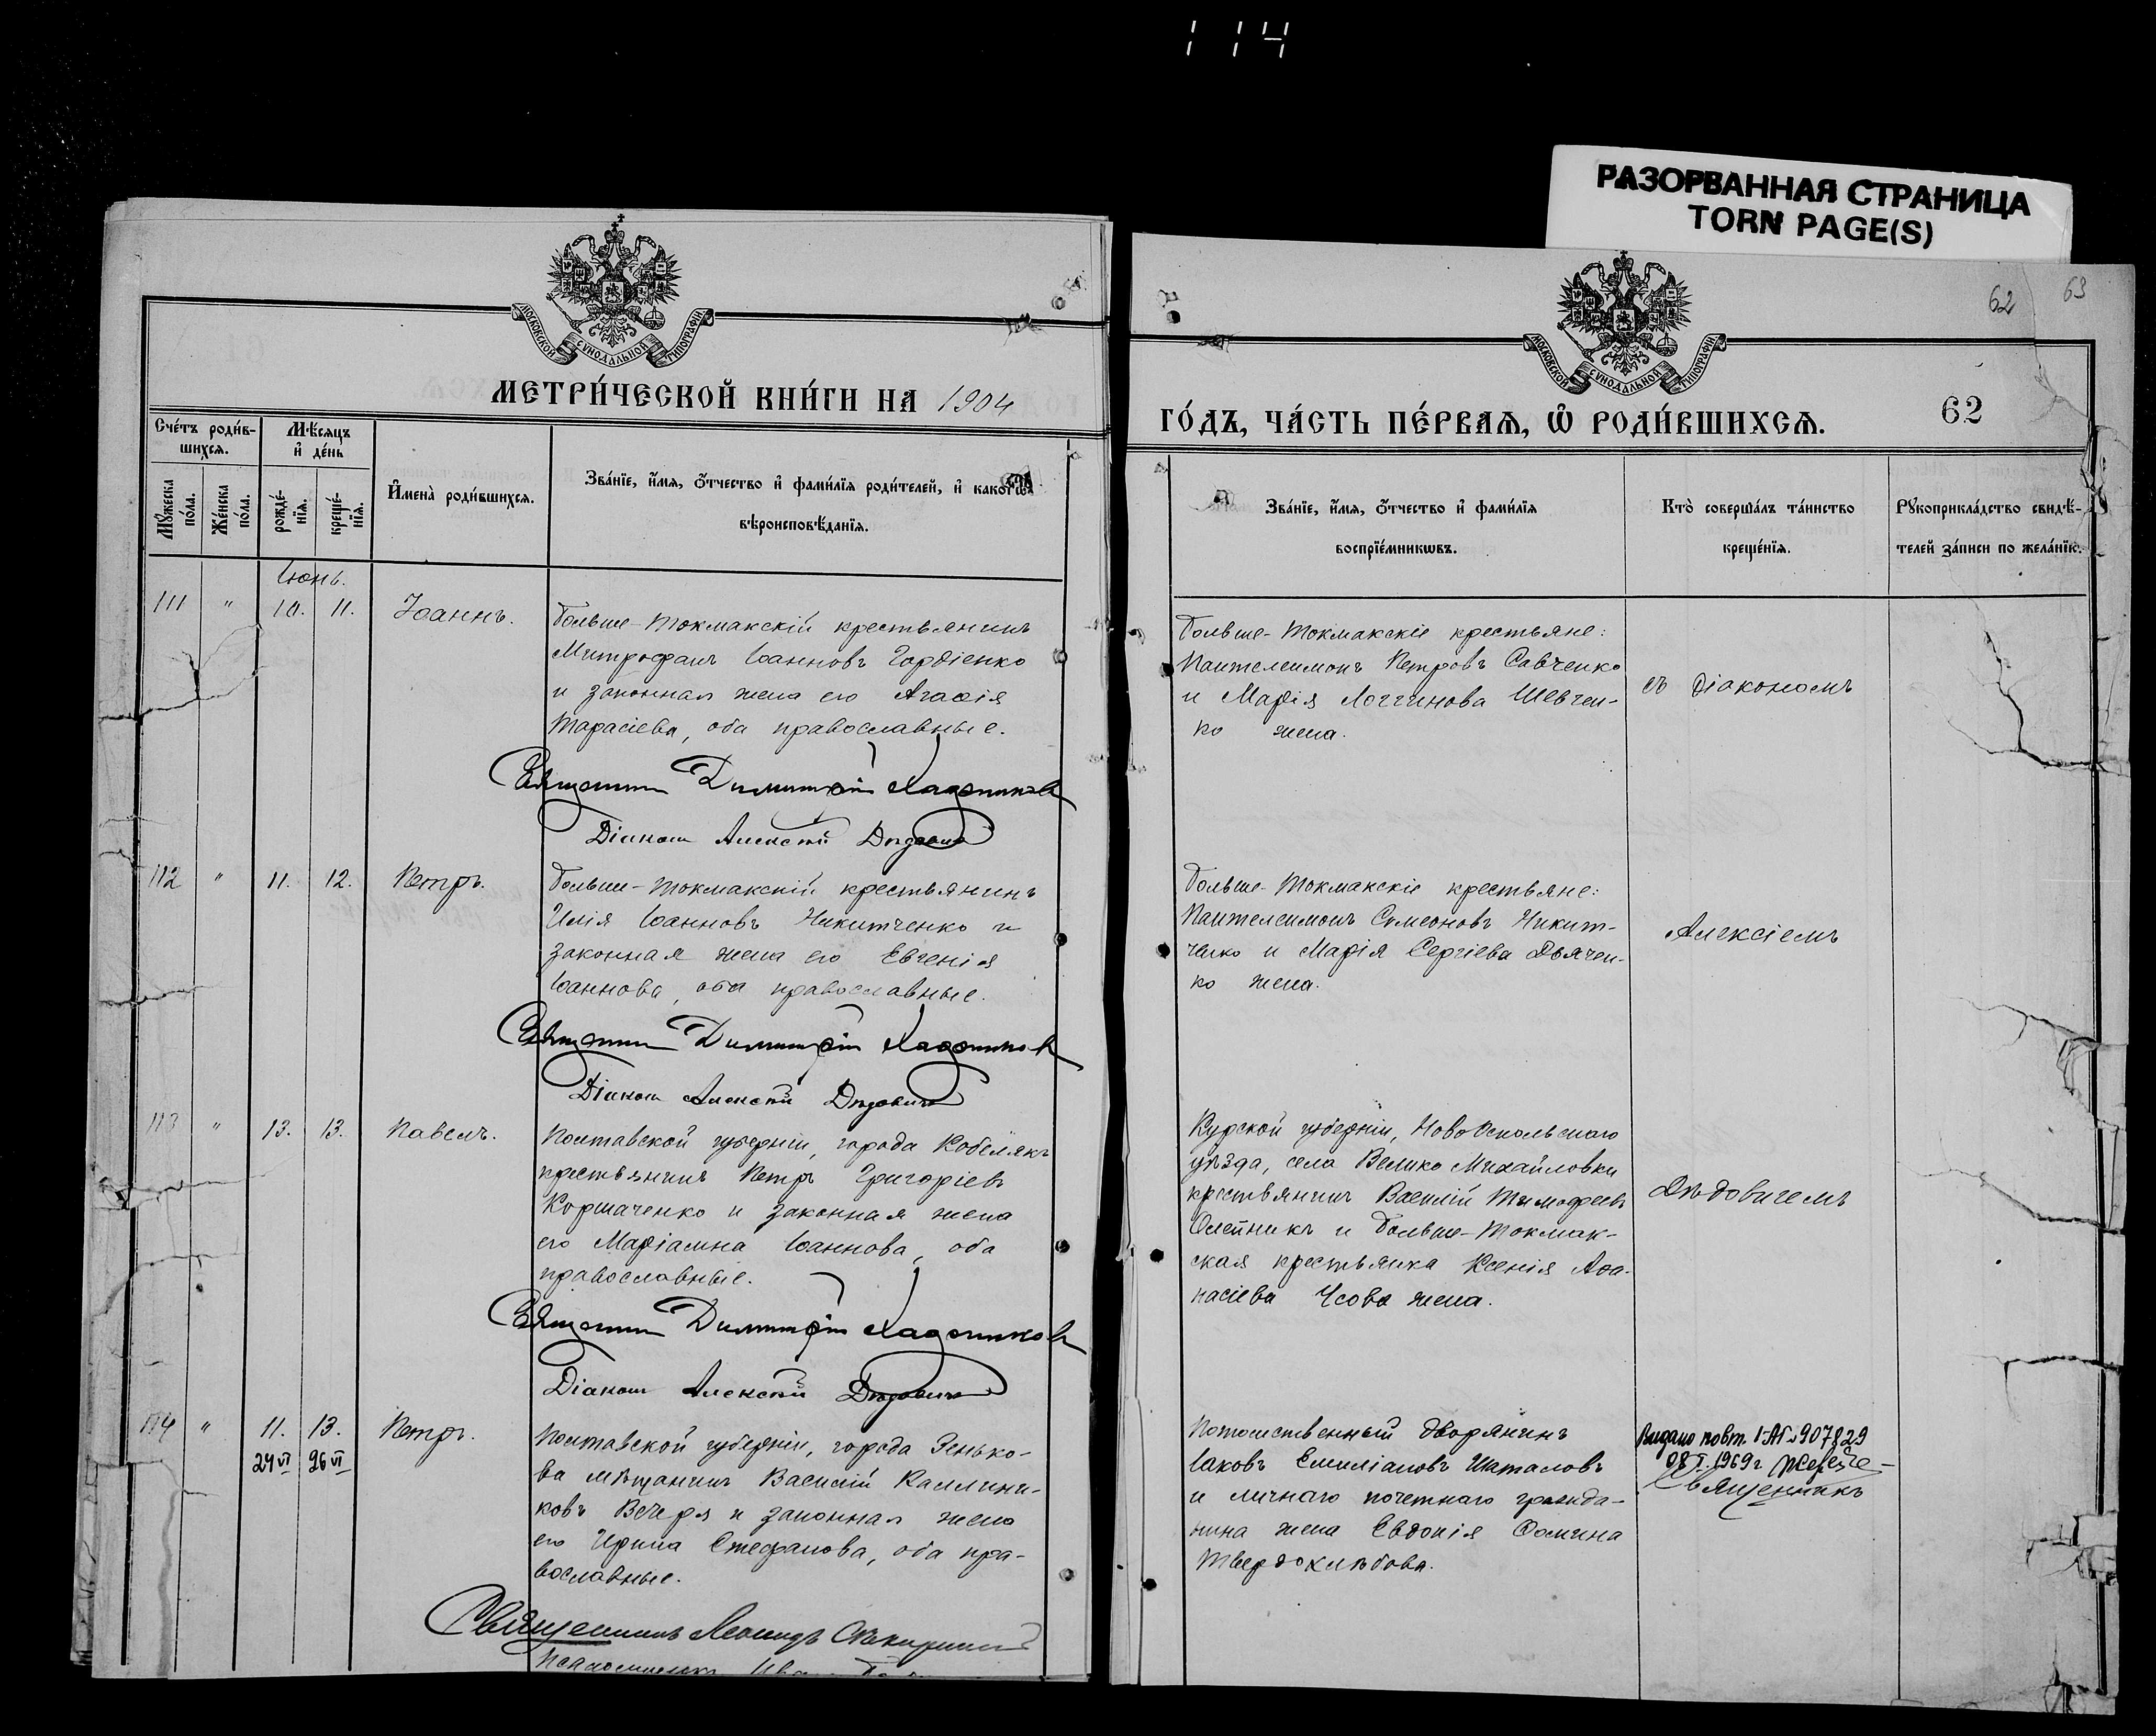 114
РАЗОРВАННАЯ СТРАНИЦА
TORN PAGE(S)
МОСКОВСКОЙ СУНОДАЛЬНОЙ ТИПОГРАФІИ
МЕТРИ́ЧЕСКОЙ КНИ́ГИ НА 1904
Сче́тъ роди́в-
шихсѧ.
Мѣ́сѧцъ
и҆ де́нь
Мꙋ́жеска
по́ла.
Же́нска
по́ла.
рожде́-
нїѧ.
креще́-
нїѧ.
И҆мена̀ роди́вшихсѧ.
Зва́нїе, и҆́мѧ, ѻ҆́тчество и҆ фами́лїѧ роди́телей, и҆ како́гѡ
вѣроисповѣ́данїѧ.
Іюнь.
111 " 10. 11. Іоаннъ.
Больше-Токмакскій крестьянинъ
Митрофанъ Іоанновъ Гордіенко
и законная жена его Агафія
Тарасіева, оба православные.
Священникъ Димитрій Ладенников
Діаконъ Алексѣй Дѣдовичъ
112 " 11. 12. Петръ.
Больше-Токмакскій крестьянинъ
Илія Іоанновъ Никитченко и
законная жена его Евгенія
Іоаннова, оба православные.
Священникъ Димитрій
Діаконъ Алексѣй Дѣдовичъ
113 " 13. 13. Павелъ.
Полтавской губерніи, города Кобелякъ
крестьянинъ Петръ Григоріевъ
Коршаченко и законная жена
его Маріамна Іоаннова, оба
православные.
Священникъ Димитрій
Діаконъ Алексѣй Дѣдовичъ
114 " 11. 13. Петръ.
24 VI 26 VI
Полтавской губерніи, города Зенько-
ва мѣщанинъ Василій Каллини-
ковъ Вечеря и законная жена
его Ирина Стефанова, оба пра-
вославные.
Священникъ Леонидъ
Псаломщикъ
62 63
МОСКОВСКОЙ СУНОДАЛЬНОЙ ТИПОГРАФІИ
ГО́ДЪ, ЧА́СТЬ ПЕ́РВАѦ, Ѽ РОДИ́ВШИХСѦ. 62
Зва́нїе, и҆́мѧ, ѻ҆́тчество и҆ фами́лїѧ
воспрїе́мникѡвъ.
Кто̀ соверша́лъ та́инство
креще́нїѧ.
Рꙋкоприкла́дство свидѣ́-
телей за́писи по жела́нїю.
Больше-Токмакскіе крестьяне:
Пантелеимонъ Петровъ Савченко
и Марія Логгинова Шевчен-
ко жена.
съ діакономъ
Больше-Токмакскіе крестьяне:
Пантелеимонъ Симеоновъ Никит-
ченко и Марія Сергіева Дьячен-
ко жена.
Алексіемъ
Курской губерніи, Ново Оскольскаго
уѣзда, села Велико Михайловки
крестьянинъ Василій Тимофеевъ
Олейникъ и Больше-Токмак-
ская крестьянка Ксенія Аѳа-
насіева Усова жена.
Дѣдовичемъ
Потомственный дворянинъ
Іаковъ Емиліановъ Шаталовъ
и личнаго почетнаго гражда-
нина жена Евдокія Ѳомина
Твердохлѣбова.
Видано повт. І-АГ № 907829
08 I. 1969 г
Священникъ